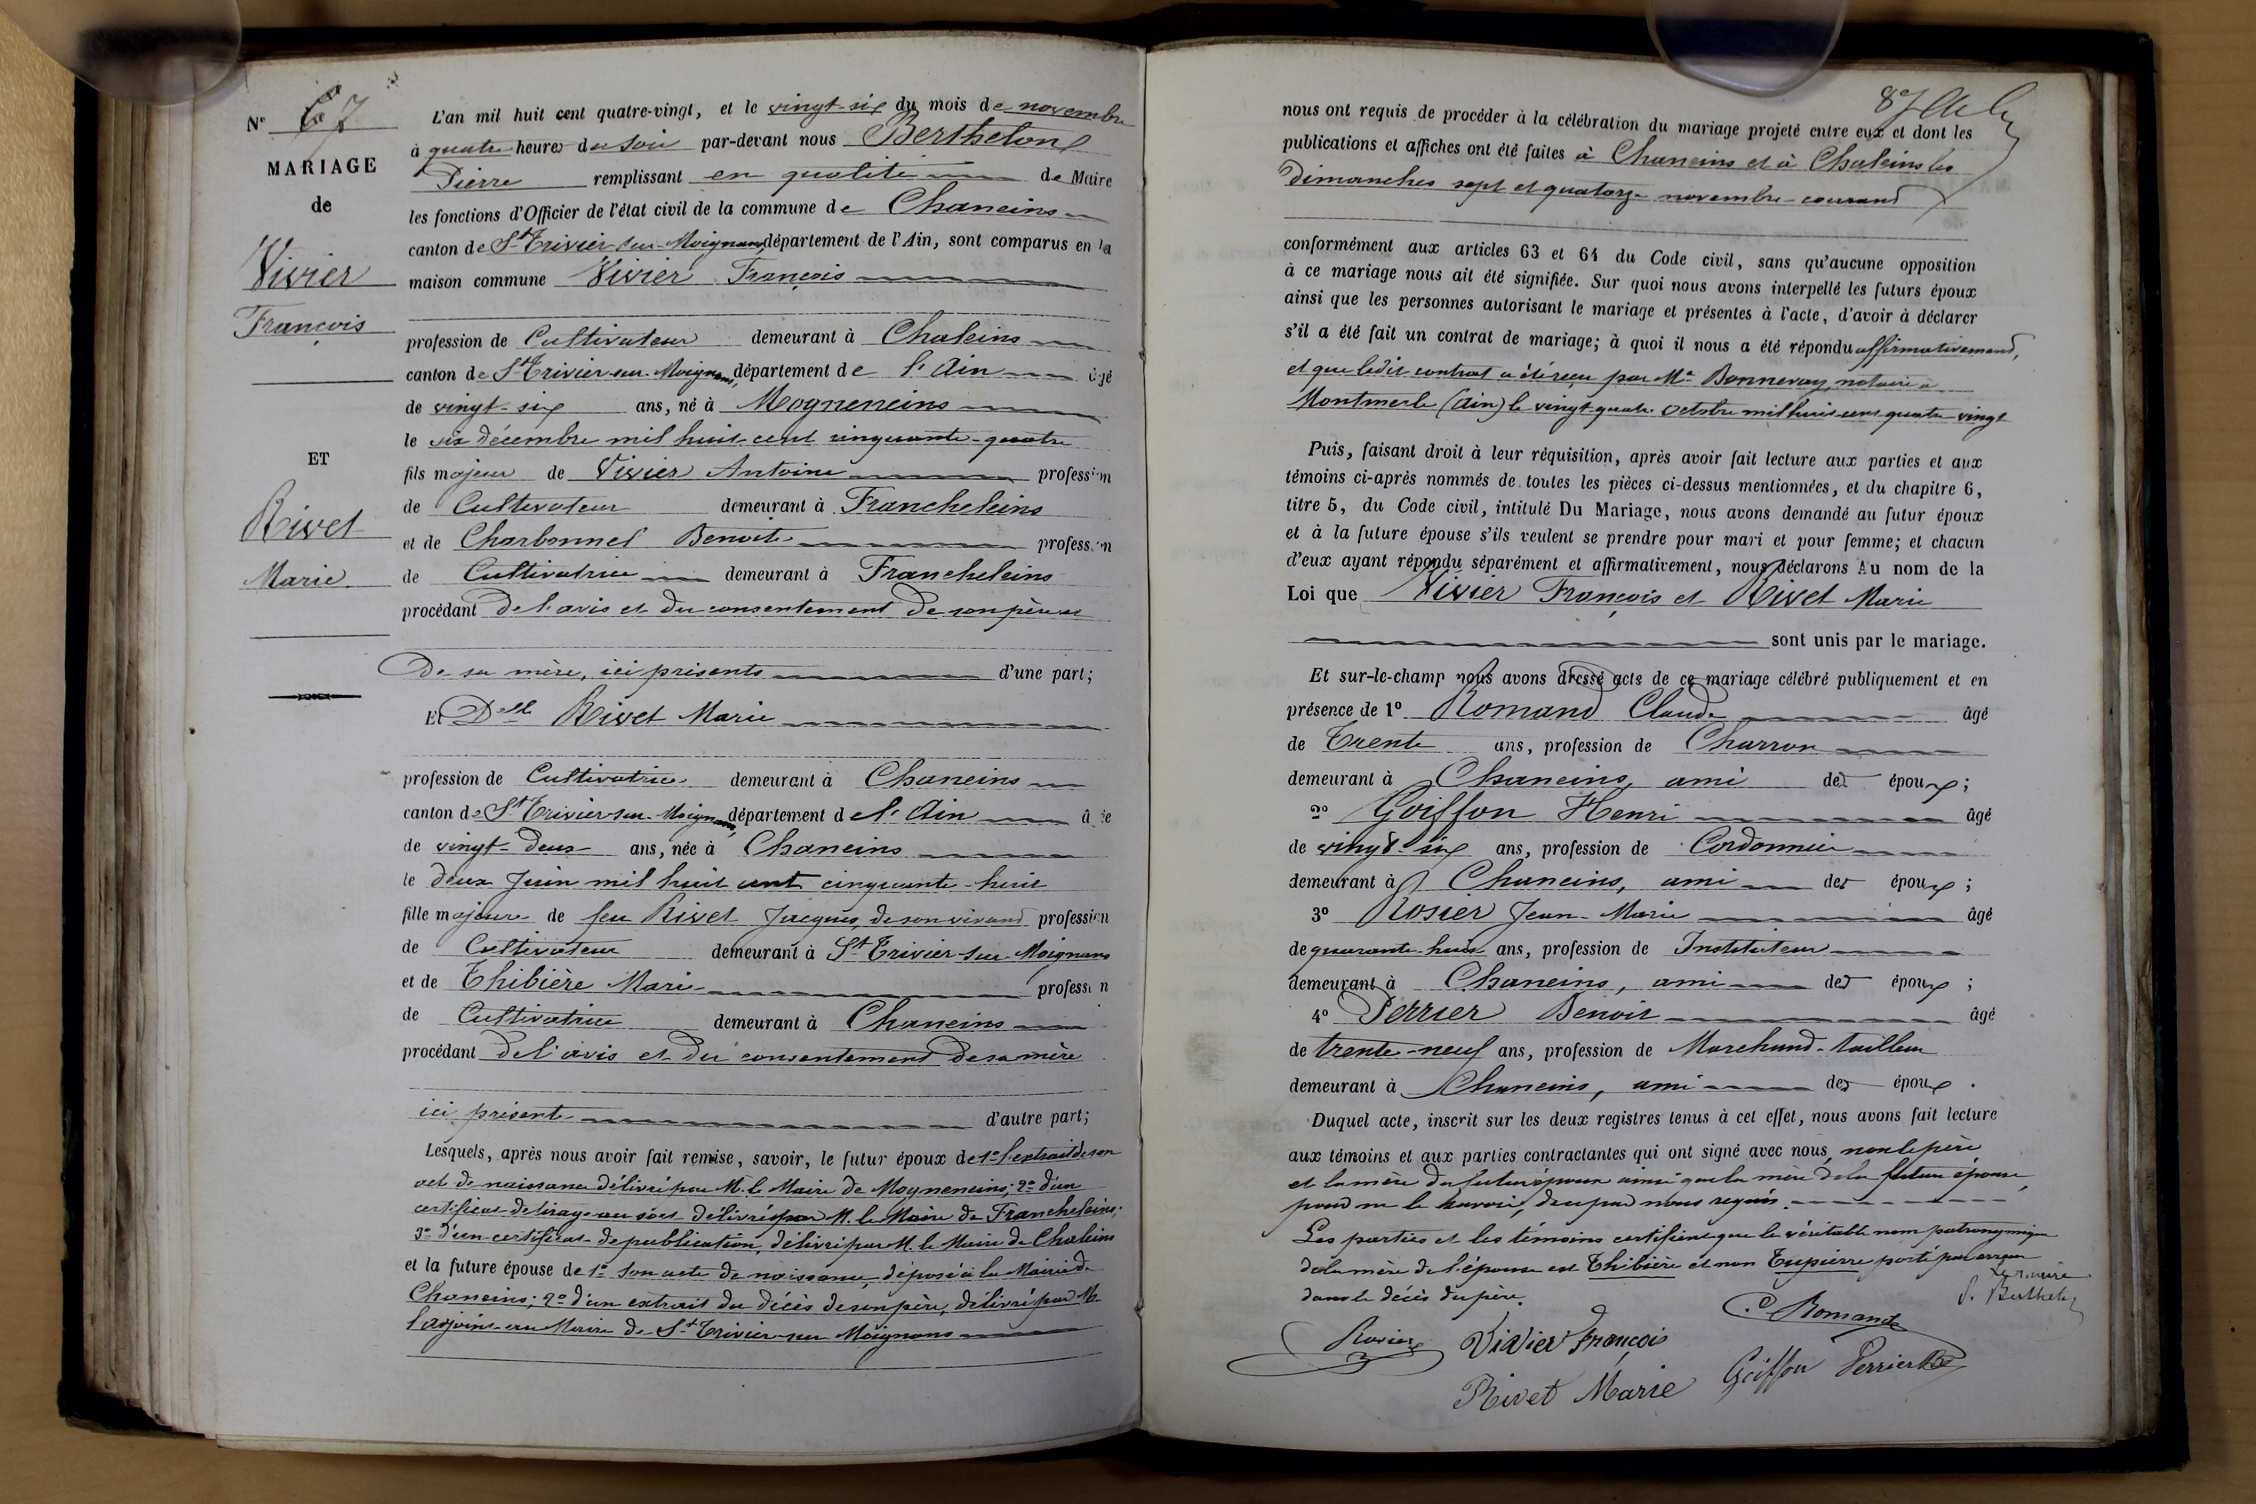 N° 67
MARIAGE
de
Vivier
François
ET
Rivet
Marie
L'an mil huit cent quatre-vingt, et le vingt-six du mois de novembre
à quatre heures du soir par-devant nous Berthelon
Pierre remplissant en qualité de Maire
les fonctions d'Officier de l'état civil de la commune de Chaneins
canton de St Trivier-sur-Moignans département de l'Ain, sont comparus en la
maison commune Vivier François
profession de Cultivateur demeurant à Chaleins
canton de St Trivier-sur-Moignans, département de l'Ain âgé
de vingt-six ans, né à Mogneneins
le six décembre mil huit cent cinquante-quatre
fils majeur de Vivier Antoine profession
de Cultivateur demeurant à Francheleins
et de Charbonnel Benoite profession
de Cultivatrice demeurant à Francheleins
procédant de l'avis et du consentement de son père et
de sa mère, ici présents d'une part;
Et Delle Rivet Marie
profession de Cultivatrice demeurant à Chaneins
canton de St Trivier-sur-Moignans, département de l'Ain âgée
de vingt-deux ans, née à Chaneins
le deux Juin mil huit cent cinquante-huit
fille majeure de feu Rivet Jacques, de son vivant profession
de Cultivateur demeurant à St Trivier-sur-Moignans
et de Thibière Marie profession
de Cultivatrice demeurant à Chaneins
procédant de l'avis et du consentement de sa mère
ici présente d'autre part;
Lesquels, après nous avoir fait remise, savoir, le futur époux de 1° l'extrait de son
acte de naissance délivré par M. le Maire de Mogneneins; 2° d'un
certificat de tirage au sort délivré par M. le Maire de Francheleins;
3° d'un certificat de publication, délivré par M. le Maire de Chaleins
et la future épouse de 1° son acte de naissance, déposé à la Mairie de
Chaneins; 2° d'un extrait du décès de son père, délivré par M.
l'adjoint au Maire de St Trivier-sur-Moignans
87
nous ont requis de procéder à la célébration du mariage projeté entre eux et dont les
publications et affiches ont été faites à Chaneins et à Chaleins les
Dimanches sept et quatorze novembre courant
conformément aux articles 63 et 64 du Code civil, sans qu'aucune opposition
à ce mariage nous ait été signifiée. Sur quoi nous avons interpellé les futurs époux
ainsi que les personnes autorisant le mariage et présentes à l'acte, d'avoir à déclarer
s'il a été fait un contrat de mariage; à quoi il nous a été répondu affirmativement,
et que ledit contrat a été reçu par Me Bonnevay notaire à
Montmerle (Ain) le vingt-quatre octobre mil huit cent quatre vingt
Puis, faisant droit à leur réquisition, après avoir fait lecture aux parties et aux
témoins ci-après nommés de toutes les pièces ci-dessus mentionnées, et du chapitre 6,
titre 5, du Code civil, intitulé Du Mariage, nous avons demandé au futur époux
et à la future épouse s'ils veulent se prendre pour mari et pour femme; et chacun
d'eux ayant répondu séparément et affirmativement, nous déclarons Au nom de la
Loi que Vivier François et Rivet Marie
sont unis par le mariage.
Et sur-le-champ nous avons dressé acte de ce mariage célébré publiquement et en
présence de 1° Romand Claude âgé
de Trente ans, profession de Charron
demeurant à Chaneins, ami des époux;
2° Goiffon Henri âgé
de vingt-six ans, profession de Cordonnier
demeurant à Chaneins, ami des époux;
3° Rosier Jean-Marie âgé
de quarante-huit ans, profession de Instituteur
demeurant à Chaneins, ami des époux;
4° Perrier Benoit âgé
de trente-neuf ans, profession de Marchand-tailleur
demeurant à Chaneins, ami des époux.
Duquel acte, inscrit sur les deux registres tenus à cet effet, nous avons fait lecture
aux témoins et aux parties contractantes qui ont signé avec nous, non le père
et la mère du futur époux ainsi que la mère de la future épouse,
pour ne le savoir, de ce par nous requis.
Les parties et les témoins certifient que le véritable nom patronymique
de la mère de l'épouse est Thibière et non Tupierre porté par erreur
dans le décès du père.
Le maire
P. Berthelon
C. Romand
Rosier Vivier François
Rivet Marie Goiffon Perrier Bt